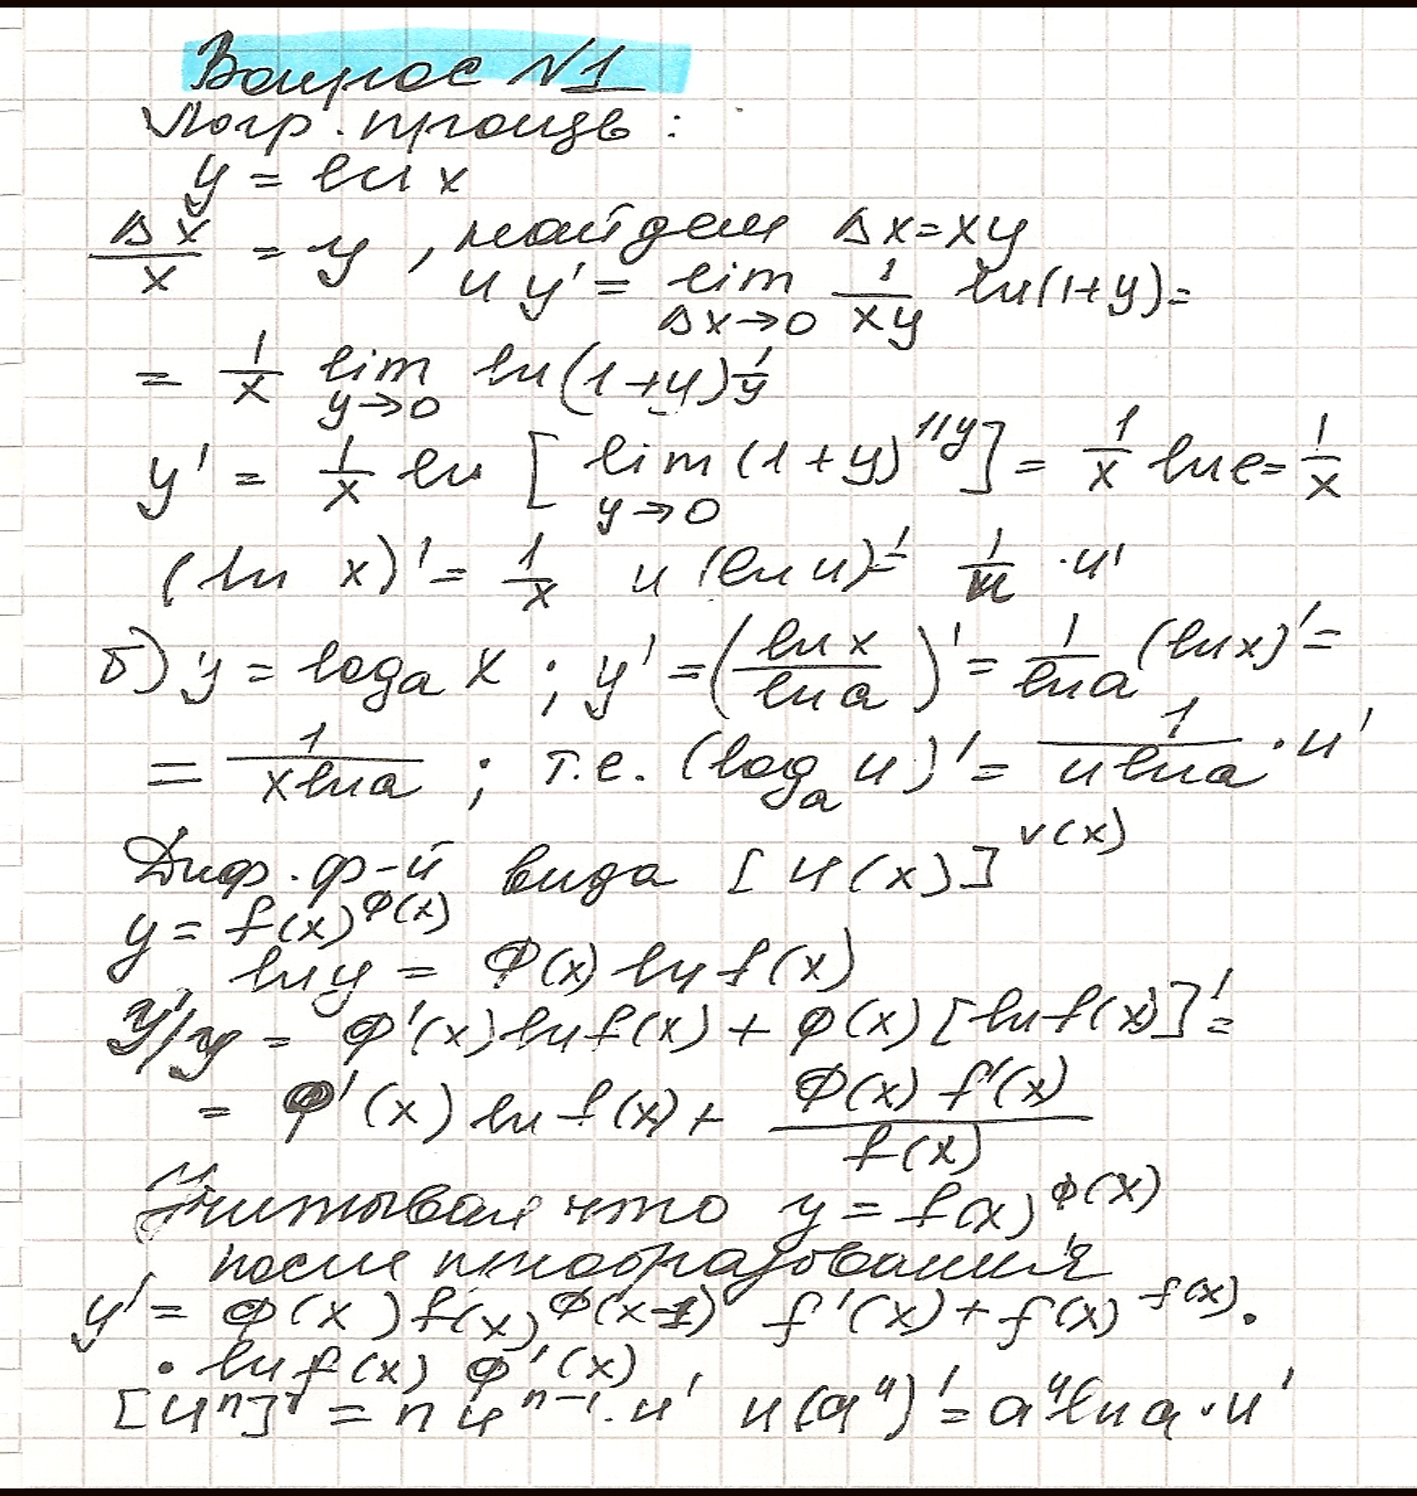 Вопрос №1
Логр. произв:
y = ln x
Δx/x = y, найдем Δx = xy
и y' = lim Δx→0 1/xy ln(1+y) =
= 1/x lim y→0 ln(1+y) 1/y
y' = 1/x ln [ lim y→0 (1+y)^1/y ] = 1/x ln e = 1/x
(ln x)' = 1/x и (ln u)' = 1/u · u'
б) y = log_a x ; y' = (ln x/ln a)' = 1/ln a (ln x)' =
= 1/x ln a ; т.е. (log_a u)' = 1/u ln a · u'
Диф. ф-й вида [u(x)]^v(x)
y = f(x)^φ(x)
ln y = φ(x) ln f(x)
y'/y = φ'(x) ln f(x) + φ(x) [ln f(x)]' =
= φ'(x) ln f(x) + φ(x) f'(x)/f(x)
Учитывая что y = f(x)^φ(x)
после преобразования
y' = φ(x) f(x)^φ(x-1) f'(x) + f(x)^f(x) ·
· ln f(x) φ'(x)
[u^n]' = n u^n-1 · u' и (a^u)' = a^u ln a · u'